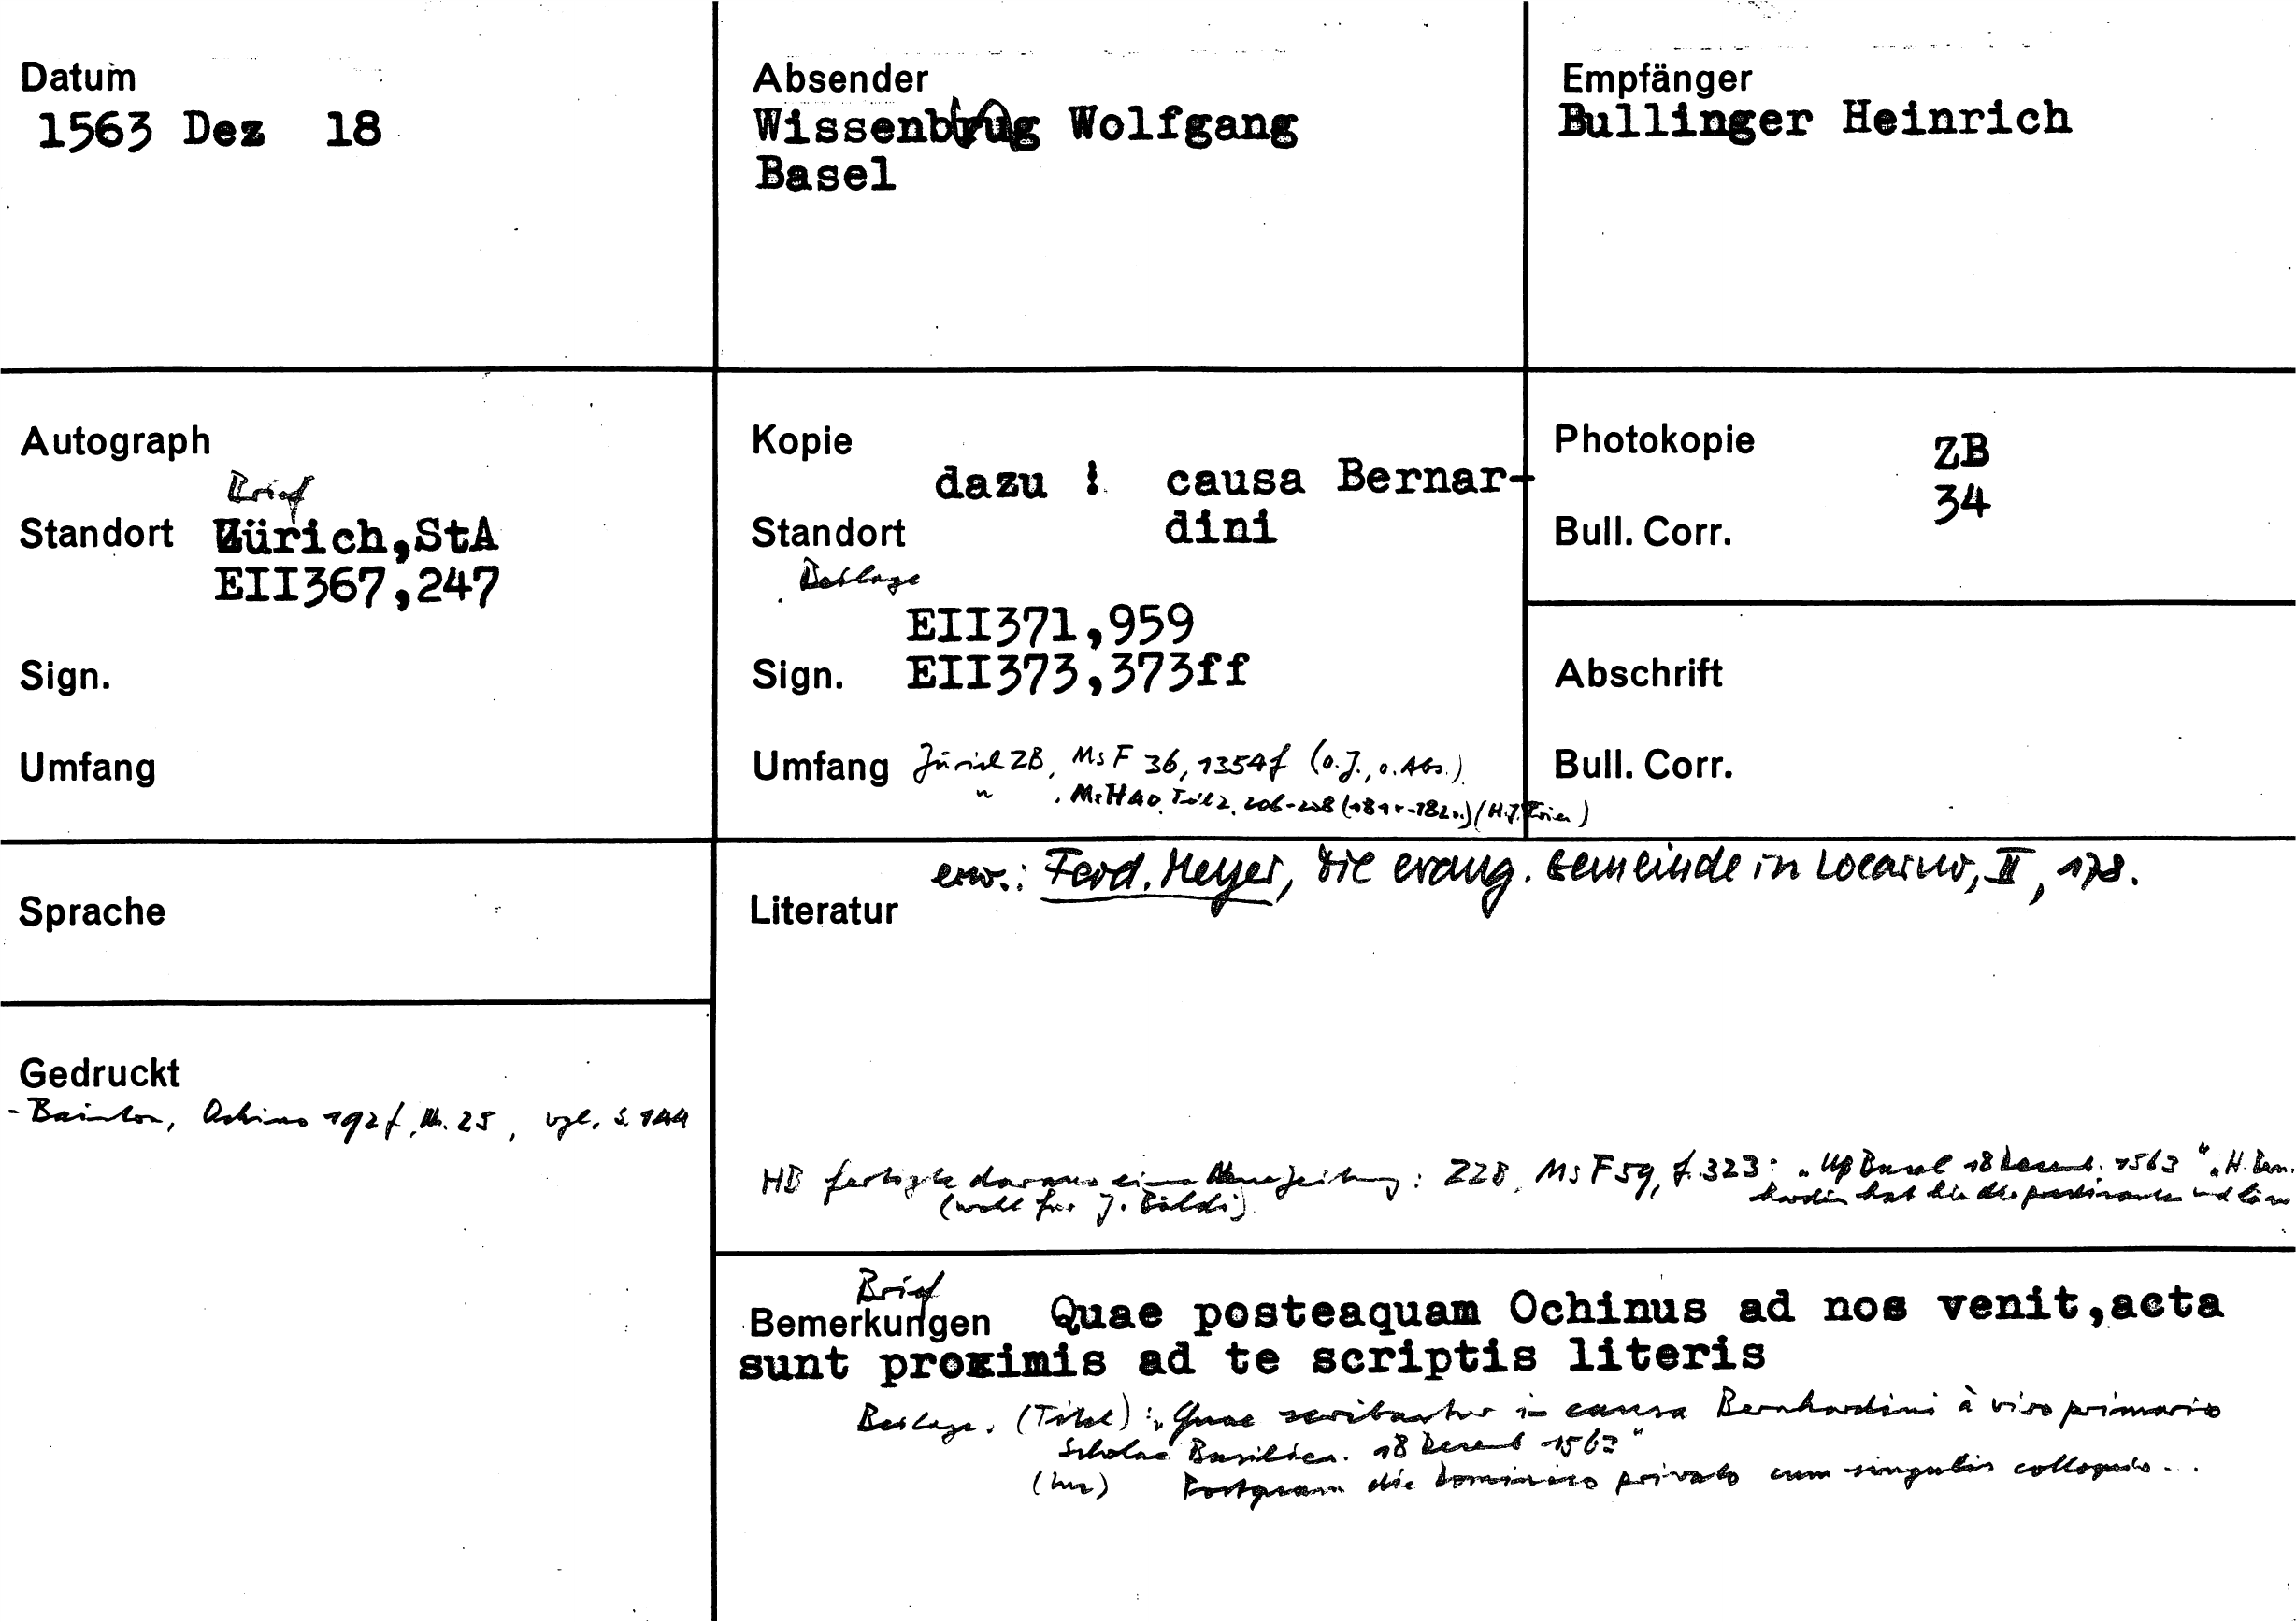 Datum
1563 Dez 18
Absender
Wissenburg Wolfgang
Basel
Empfänger
Bullinger Heinrich
Autograph
Brief
Standort Zürich,StA
EII367,247
Sign.
Umfang
Kopie
dazu ! causa Bernar-
dini
Standort
Beilage
EII371,959
Sign. EII373,373ff
Umfang Zürich ZB, Ms F 36, 1354f (o.J., o. Abs.)
" , Ms H 40, Teil 2, 206-208 (181r-182v.) (H.J.
Photokopie ZB
34
Bull. Corr.
Abschrift
Bull. Corr.
Sprache
erw.: Ferd. Meyer, Die evang. Gemeinde in Locarno, II, 178.
Literatur
Gedruckt
- Bainton, Ochino 192f, Nr. 25, vgl. S. 144
HB fertigte daraus eine Neue Zeitung: ZZB, Ms F 59, f. 323: "Uß Basel 18 Decemb. 1563" "H. Bern-
(wohl für J. hardin hat hie und
Brief
Bemerkungen Quae posteaquam Ochinus ad nos venit,acta
sunt proximis ad te scriptis literis
Beilage. (Titel): "Quae scribantur in causa Bernhardini à viro primario
Scholae Basilien. 18 Decemb 1563"
(Inc) Postquam die dominico privato cum singulis colloquio...